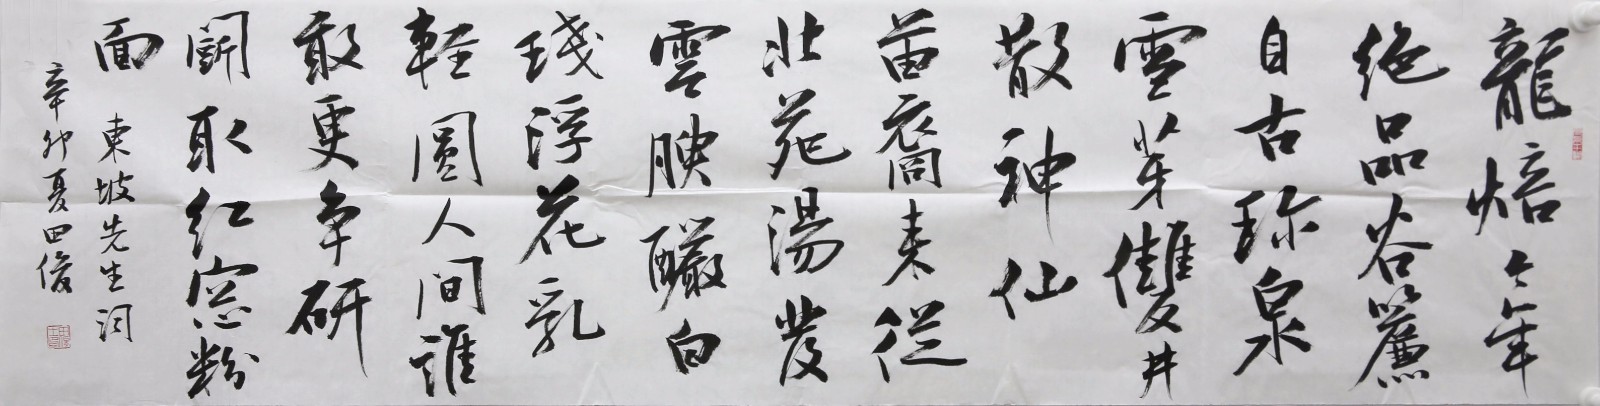 龍焙今年
絶品谷簾
自古珍泉
雪芽雙井
散神仙
苗裔来從
北苑湯發
雲腴釅白
琖浮花乳
輕圓人間誰
敢更争研
鬪取红窓粉
面
東坡先生词
辛卯夏田俊